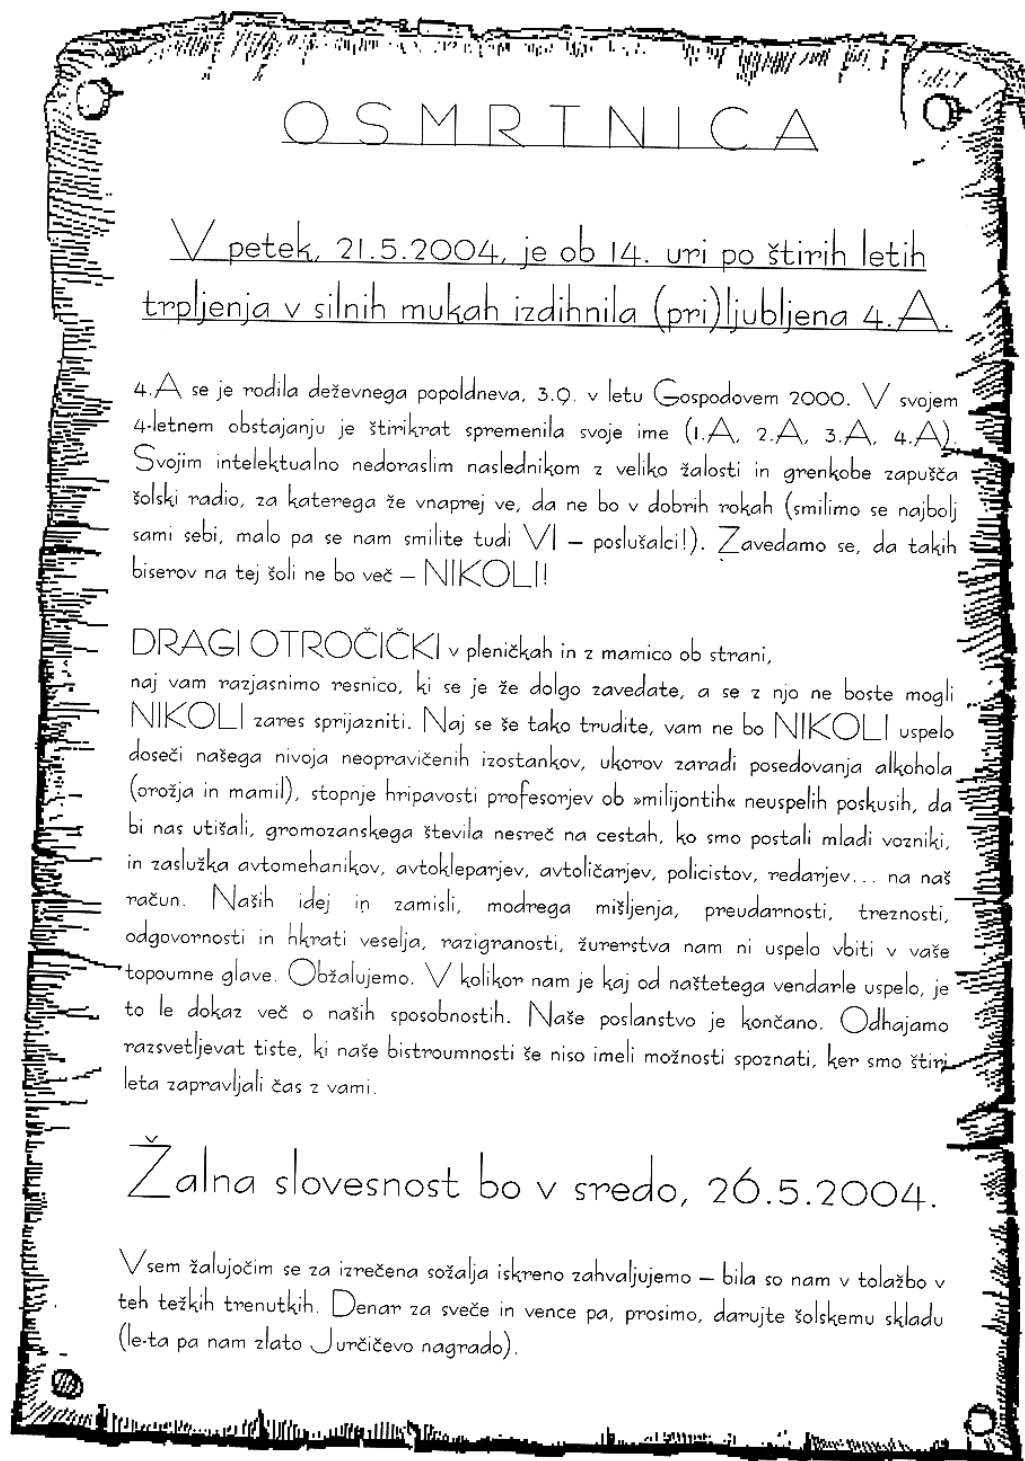 OSMRTNICA
V petek, 21.5.2004, je ob 14. uri po štirih letih
trpljenja v silnih mukah izdihnila (pri)ljubljena 4.A.
4.A se je rodila deževnega popoldneva, 3.9. v letu Gospodovem 2000. V svojem
4-letnem obstajanju je štirikrat spremenila svoje ime (1.A, 2.A, 3.A, 4.A).
Svojim intelektualno nedoraslim naslednikom z veliko žalosti in grenkobe zapušča
šolski radio, za katerega že vnaprej ve, da ne bo v dobrih rokah (smilimo se najbolj
sami sebi, malo pa se nam smilite tudi VI – poslušalci!). Zavedamo se, da takih
biserov na tej šoli ne bo več – NIKOLI!
DRAGI OTROČIČKI v pleničkah in z mamico ob strani,
naj vam razjasnimo resnico, ki se je že dolgo zavedate, a se z njo ne boste mogli
NIKOLI zares sprijazniti. Naj se še tako trudite, vam ne bo NIKOLI uspelo
doseči našega nivoja neopravičenih izostankov, ukorov zaradi posedovanja alkohola
(orožja in mamil), stopnje hripavosti profesorjev ob »milijontih« neuspelih poskusih, da
bi nas utišali, gromozanskega števila nesreč na cestah, ko smo postali mladi vozniki,
in zaslužka avtomehanikov, avtokleparjev, avtoličarjev, policistov, redarjev... na naš
račun. Naših idej in zamisli, modrega mišljenja, preudarnosti, treznosti,
odgovornosti in hkrati veselja, razigranosti, žurerstva nam ni uspelo vbiti v vaše
topoumne glave. Obžalujemo. V kolikor nam je kaj od naštetega vendarle uspelo, je
to le dokaz več o naših sposobnostih. Naše poslanstvo je končano. Odhajamo
razsvetljevat tiste, ki naše bistroumnosti še niso imeli možnosti spoznati, ker smo štiri
leta zapravljali čas z vami.
Žalna slovesnost bo v sredo, 26.5.2004.
Vsem žalujočim se za izrečena sožalja iskreno zahvaljujemo – bila so nam v tolažbo v
teh težkih trenutkih. Denar za sveče in vence pa, prosimo, darujte šolskemu skladu
(le-ta pa nam zlato Jurčičevo nagrado).